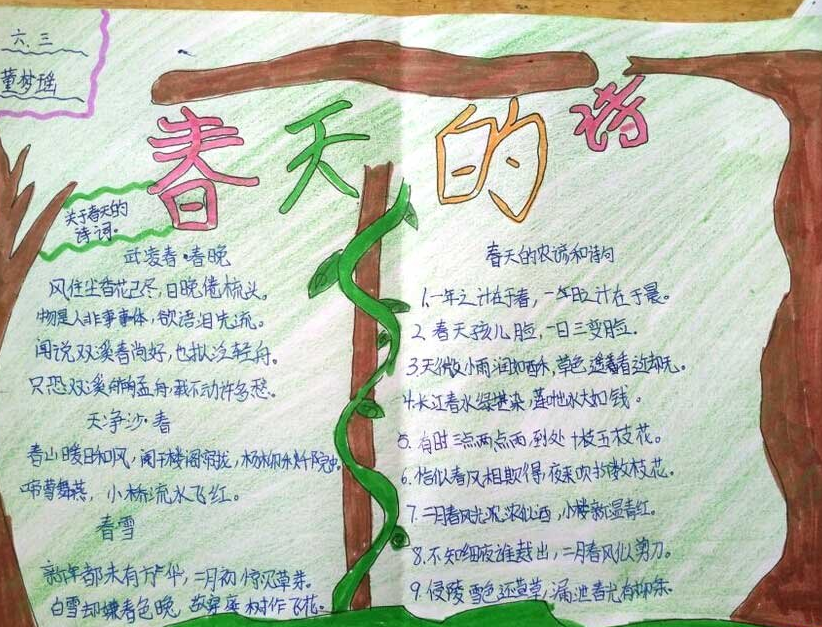 六、三
董树瑶
春天的诗
关于春天的
诗词。
武凌春·春晚
风住尘香花已尽,日晚倦梳头。
物是人非事事休,欲语泪先流。
闻说双溪春尚好,也拟泛轻舟。
只恐双溪舴艋舟,载不动许多愁。
天净沙·春
春山暖日和风,阑干楼阁帘栊,杨柳秋千院中。
啼莺舞燕,小桥流水飞红。
春雪
新年都未有芳华,二月初惊见草芽。
白雪却嫌春色晚,故穿庭树作飞花。
春天的农谚和诗句
1.一年之计在于春,一年日之计在于晨。
2.春天孩儿脸,一日三变脸。
3.天微小雨润如酥,草色遥看近却无。
4.长江春水绿堪染,莲叶水大如钱。
5.有时三点两点雨,到处十枝五枝花。
6.恰似春风相欺得,夜来吹折数枝花。
7.二月春风光浓浓似酒,小楼新温青红。
8.不知细夜谁裁出,二月春风似剪刀。
9.侵陵雪色还萱草,漏池春光有柳条。